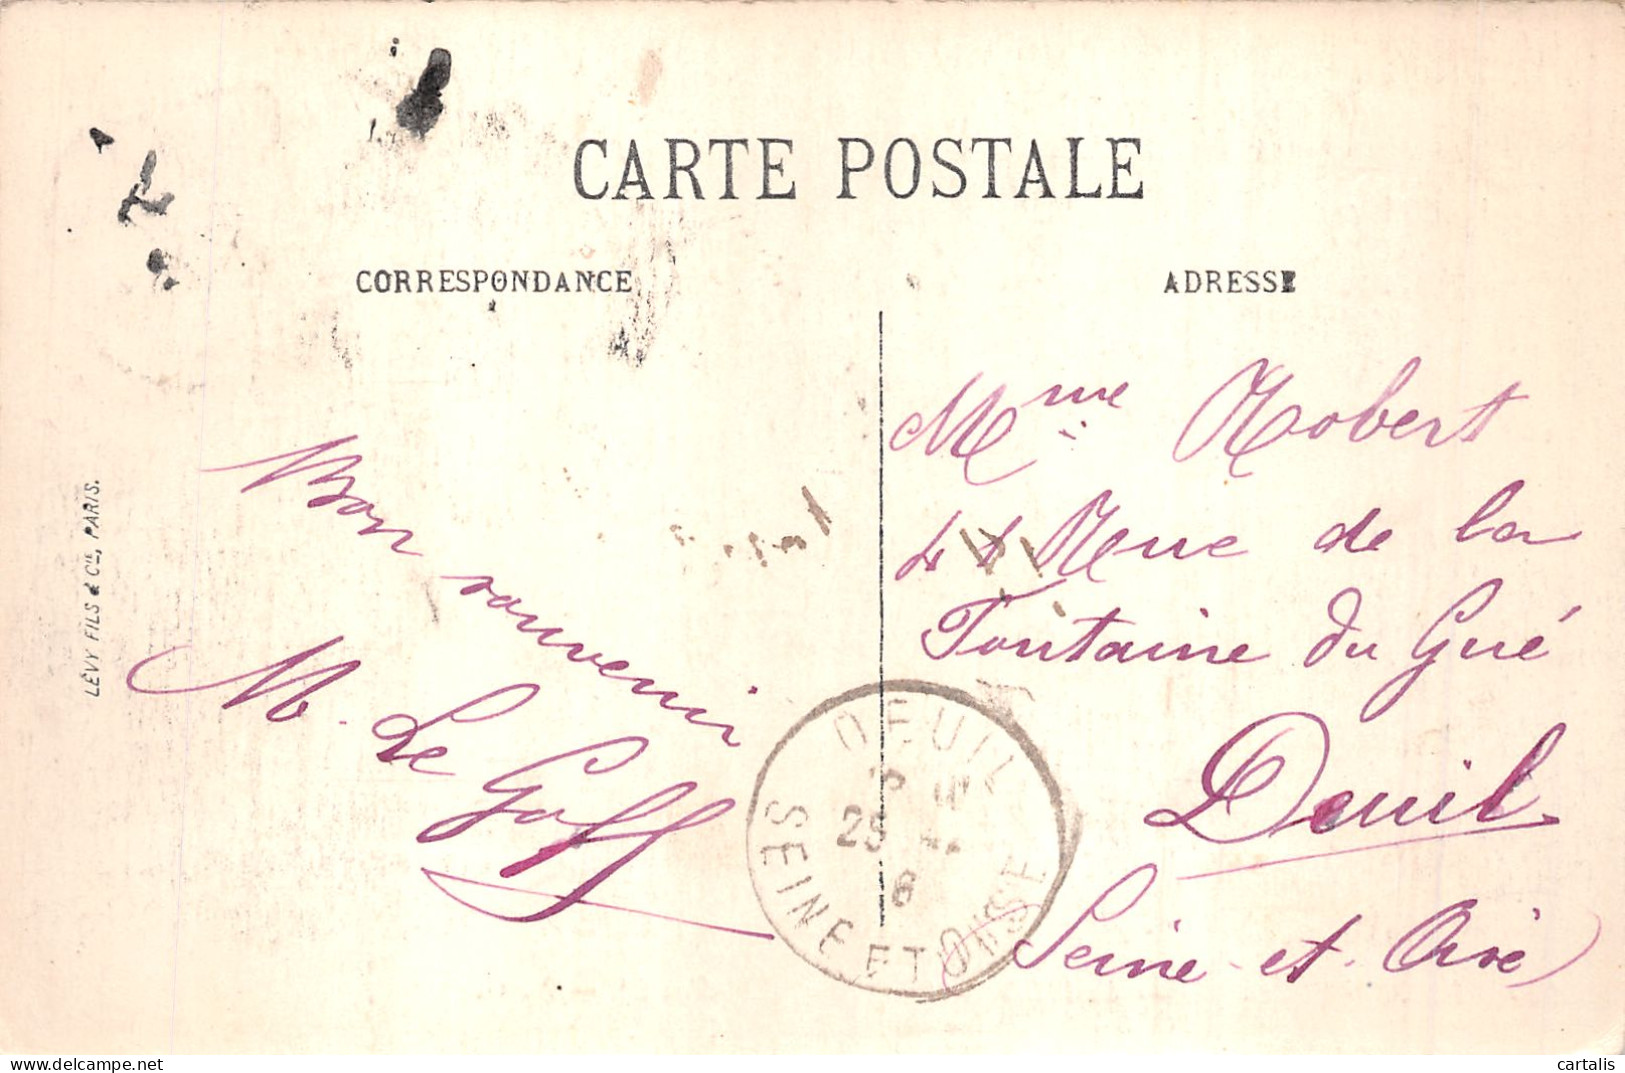 CARTE POSTALE
CORRESPONDANCE
ADRESSE
LÉVY FILS & Cie, PARIS.
Bon souvenir
M. Le Goff
Mme Robert
44 Rue de la
Fontaine du Gué
Deuil
Seine et Oise
DEUIL
25
6
SEINE ET OISE
cartalis